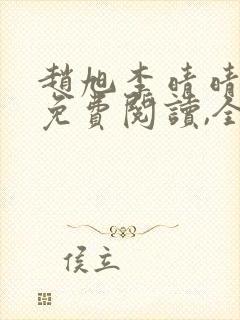 趙旭李晴晴
免費閱讀,全
侯立